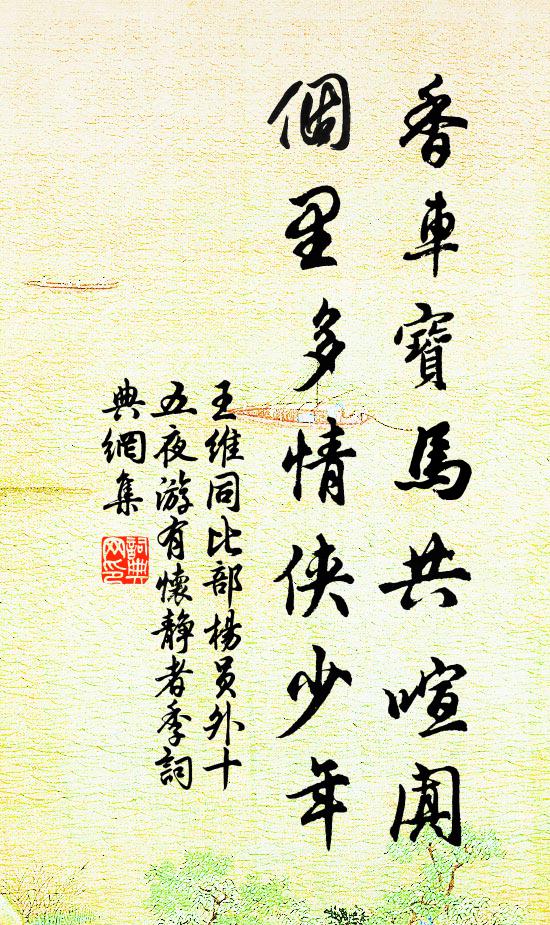 香車寶馬共喧闐
個里多情俠少年
王維同比部楊员外十
五夜游有懷靜者季詞
典網集
詞典
网印